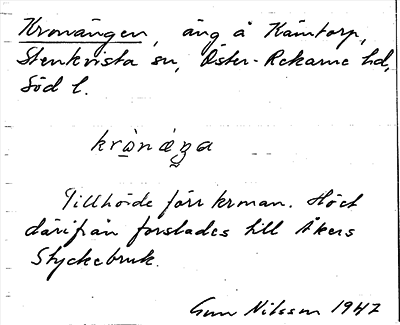 Kronängen, äng å Kämtorp,
Stenkvista sn, Öster-Rekarne hd,
Söd l.
krònǽŋa
Tillhörde förr kronan. Höet
därifrån forslades till Åkers
Styckebruk.
Gun Nilsson 1947